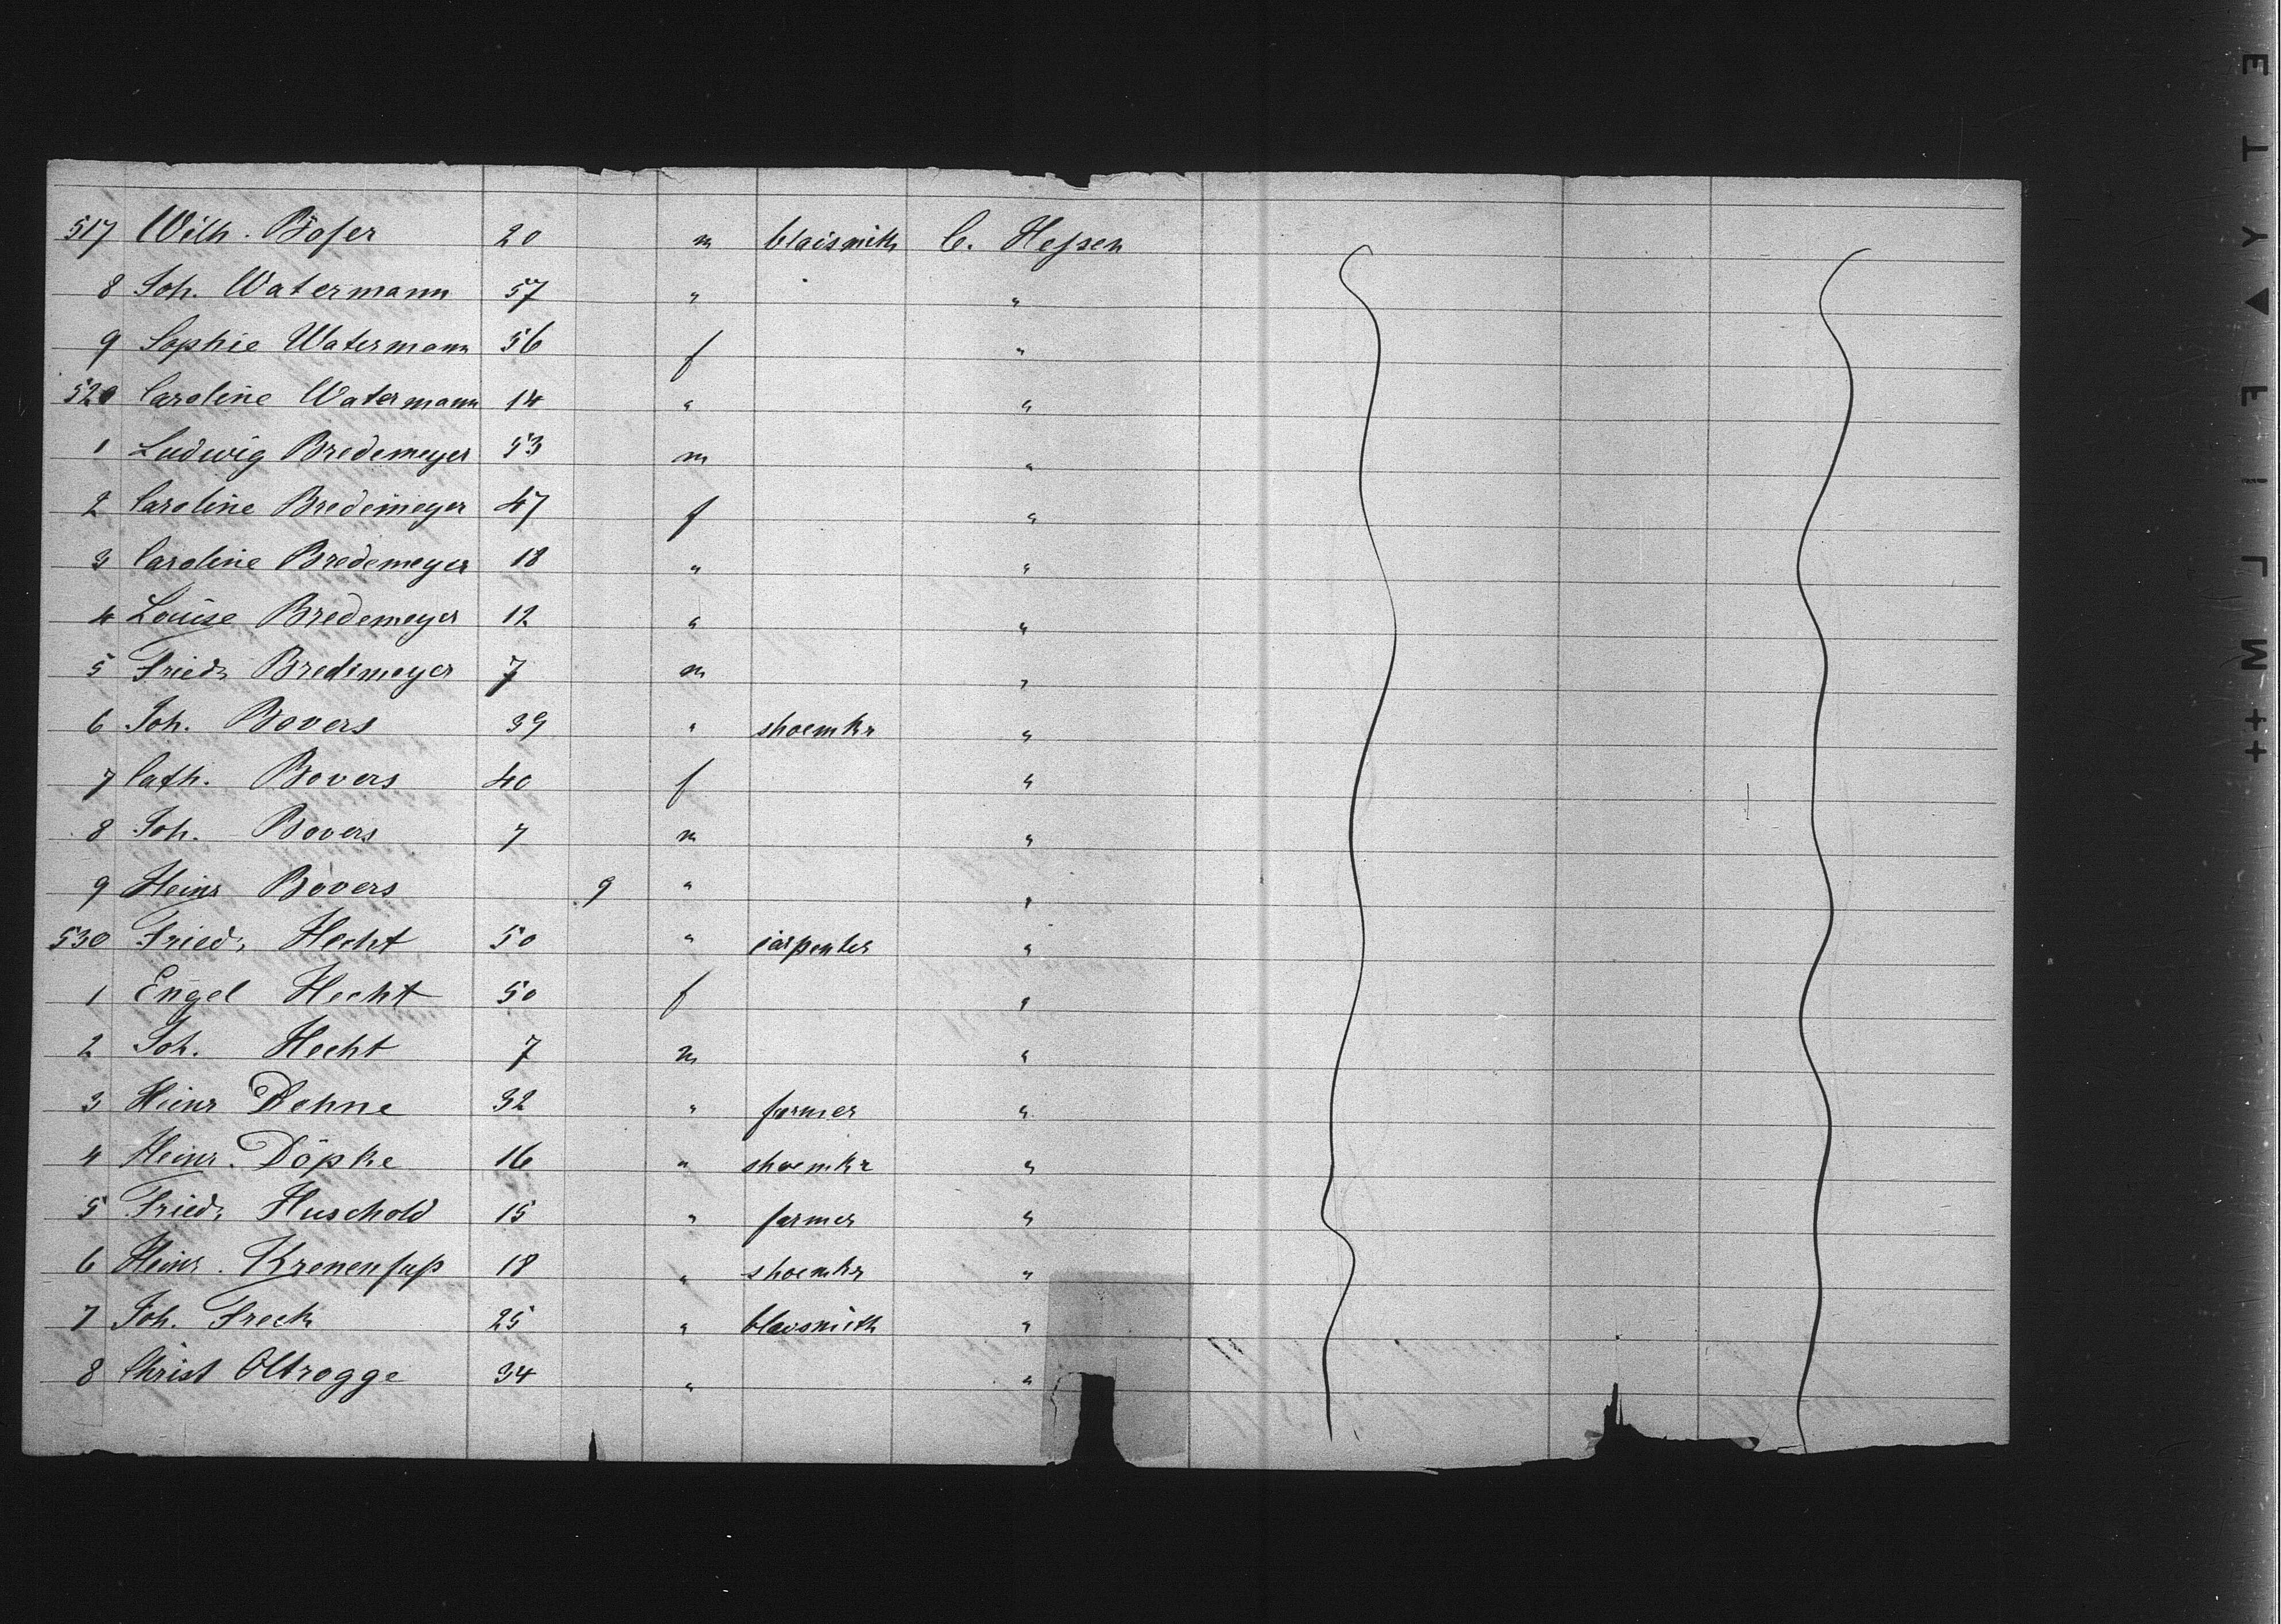 517 Wilh. Böser 20 m blaismith C. Hessen
8 Joh. Watermann 57 " "
9 Sophie Watermann 56 f "
520 Caroline Watermann 14 " "
1 Ludwig Bredemeyer 53 m "
2 Caroline Bredemeyer 47 f "
3 Caroline Bredemeyer 18 " "
4 Louise Bredemeyer 12 " "
5 Friedr Bredemeyer 7 m "
6 Joh. Bövers 39 " shoemkr "
7 Cath. Bövers 40 f "
8 Joh. Bövers 7 m "
9 Heinr Bövers 9 " "
530 Friedr. Hecht 50 " carpenter "
1 Engel Hecht 50 f "
2 Joh. Hecht 7 m "
3 Heinr Dehne 32 " farmer "
4 Heinr. Döpke 16 " shoemkr "
5 Friedr Huschold 15 " farmer "
6 Heinr. 18 " shoemkr "
7 Joh. Freck 25 " blaismith "
8 Christ Oltrogge 34 " "
++ MILF▲YTE